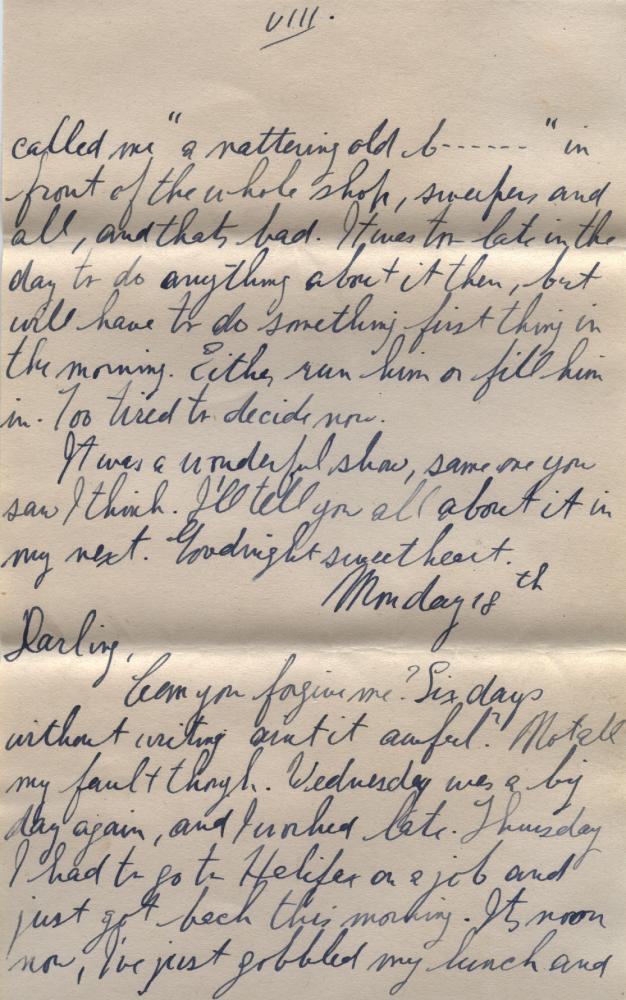 VIII.
called me "a nattering old b------" in
front of the whole shop, sweepers and
all, and thats bad. It was too late in the
day to do anything about it then, but
will have to do something first thing in
the morning. Either run him or fill him
in. Too tired to decide now.
It was a wonderful show, same one you
saw I think. I'll tell you all about it in
my next. Goodnight sweetheart.
Monday 18th
Darling,
Can you forgive me? Six days
without writing aint it awful? Not all
my fault though. Wednesday was a big
day again, and I worked late. Thursday
I had to go to Halifax on a job and
just got back this morning. Its noon
now, I've just gobbled my lunch and